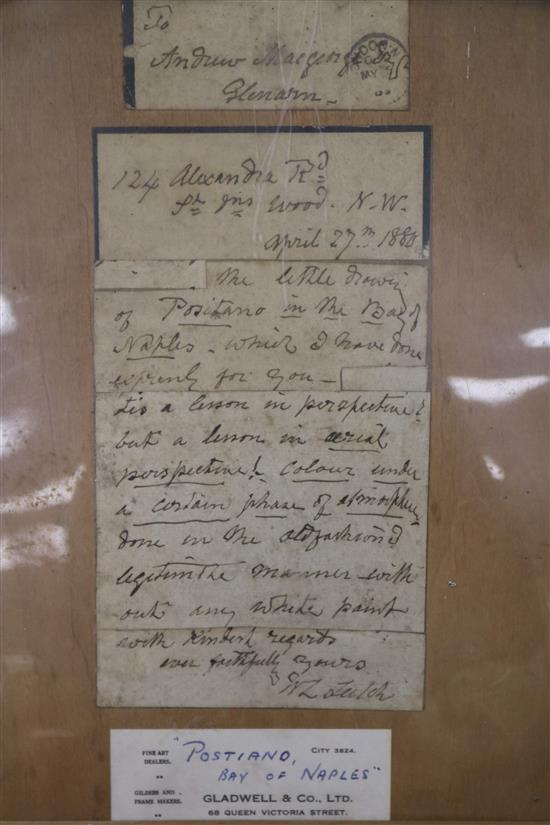 To
Andrew Macgeorge
Glenarn
124 Alexandra Rd
St Jns Wood. N.W.
April 27th 1880
the little drawing
of Positano in the Bay of
Naples - which I have done
expressly for you -
tis a lesson in perspective!
but a lesson in aerial
perspective! Colour under
a certain phase of atmosphere
done in the oldfashion'd
legitimate manner - with
out any white paint
with kindest regards
ever faithfully yours
W L Leitch
FINE ART
DEALERS,
"
GILDERS AND
FRAME MAKERS.
"
"POSTIANO,
BAY OF NAPLES"
CITY 3824.
GLADWELL & CO., LTD.
68 QUEEN VICTORIA STREET.